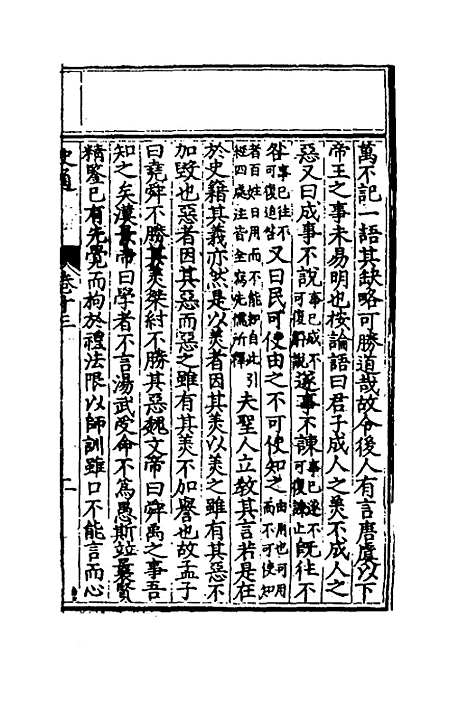 萬不記一語其缺略可勝道哉故令後人有言唐虞以下
帝王之事未易明也按論語曰君子成人之美不成人之
惡又曰成事不說事已成不可復解說遂事不諫事已遂不可復諫止旣往不
咎事已往不可復追咎又曰民可使由之不可使知之由用也可用而不可使知
者百姓日用而不能知自此引經四處注皆全寫先儒所釋夫聖人立教其言若是在
於史籍其義亦然是以美者因其美以美之雖有其惡不
加毀也惡者因其惡而惡之雖有其美不加譽也故孟子
曰堯舜不勝其美桀紂不勝其惡魏文帝曰舜禹之事吾
知之矣漢景帝曰學者不言湯武受命不爲愚斯竝曩賢
精鑒已有先覺而拘於禮法限以師訓雖口不能言而心
史通 卷十三 二